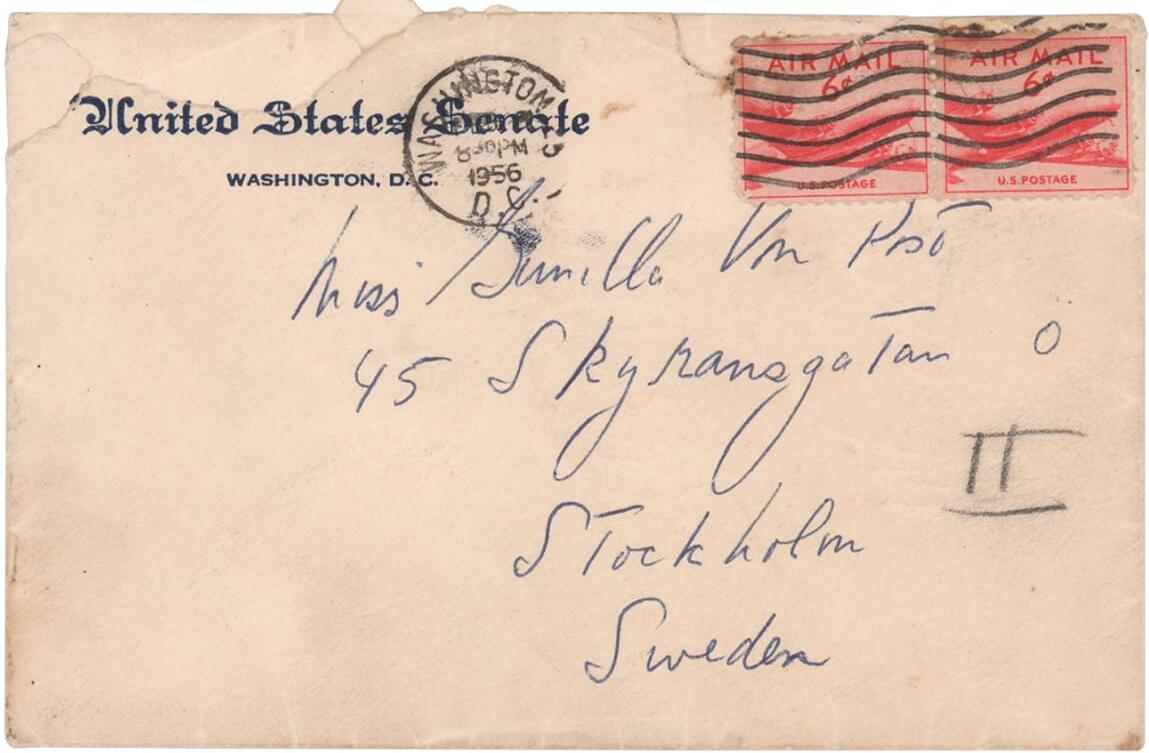 United States Senate
WASHINGTON, D.C.
WASHINGTON
8 30 PM
1956
D.C.
AIR MAIL
6¢
U.S. POSTAGE
AIR MAIL
6¢
U.S. POSTAGE
Miss Gunilla Von Post
45 Skyransgatan O
II
Stockholm
Sweden